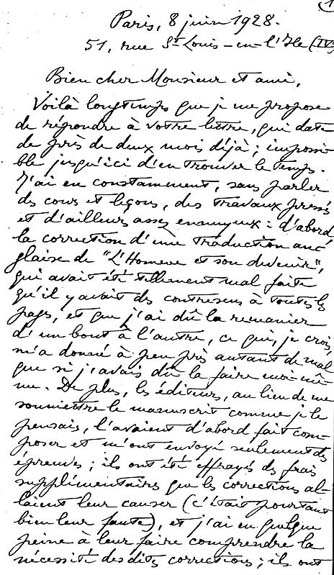 1
Paris, 8 juin 1928.
51, rue St Louis-en-l'Ile (IVe)
Bien cher Monsieur et ami,
Voilà longtemps que je me propose
de répondre à votre lettre, qui date
de près de deux mois déjà ; impossi-
ble jusqu'ici d'en trouver le temps.
J'ai eu constamment, sans parler
des cours et leçons, des travaux pressés
et d'ailleurs assez ennuyeux : d'abord
la correction d'une traduction an-
glaise de "L'Homme et son devenir",
qui avait été tellement mal faite
qu'il y avait des contresens à toutes les
pages, et que j'ai dû la remanier
d'un bout à l'autre, ce qui, je crois,
m'a donné à peu près autant de mal
que si j'avais dû la faire moi-mê-
me. De plus, les éditeurs, au lieu de me
soumettre le manuscrit comme je le
pensais, l'avaient d'abord fait com-
poser et m'ont envoyé seulement des
épreuves ; ils ont été effrayés des frais
supplémentaires que les corrections al-
laient leur causer (c'était pourtant
bien leur faute), et j'ai eu quelque
peine à leur faire comprendre la
nécessité des dites corrections ; ils ont